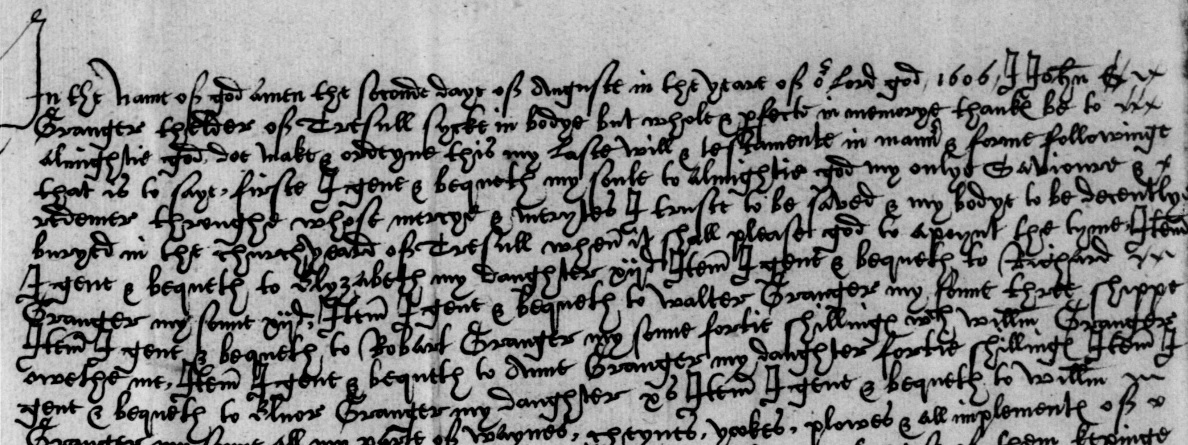 In the name of god amen the seconde daye of Auguste in the yeare of or Lord god, 1606, I John
Granger thelder of Tresull sycke in bodye but whole & pfecte in memorye thankes be to
almightie god doe make & ordeyne this my Laste will & testamente in manner & forme followinge
that is to saye, firste I geue & bequeth my soule to almightie god my onlye Savioure &
redemer throughe whose mercye & merytes I truste to be saved & my bodye to be decently
buryed in the church yeard of Tresull when it shall please god to apoynt the tyme, Item
I geue & bequeth to Elyzabeth my daughter xijd, Item I geue & bequeth to Richard
Granger my sonne xijd, Item I geue & bequeth to Walter Granger my sonne three shippe
Item I geue & bequeth to Robart Granger my sonne fortie shillings wch willm Granger
owethe me, Item I geue & bequeth to Anne Granger my daughter fortie shillings Item I
geue & bequeth to Elnor Granger my daughter xs Item I geue & bequeth to willm
Granger my sonne all my parte of waynes, cheynes, yookes, plowes & all implements of